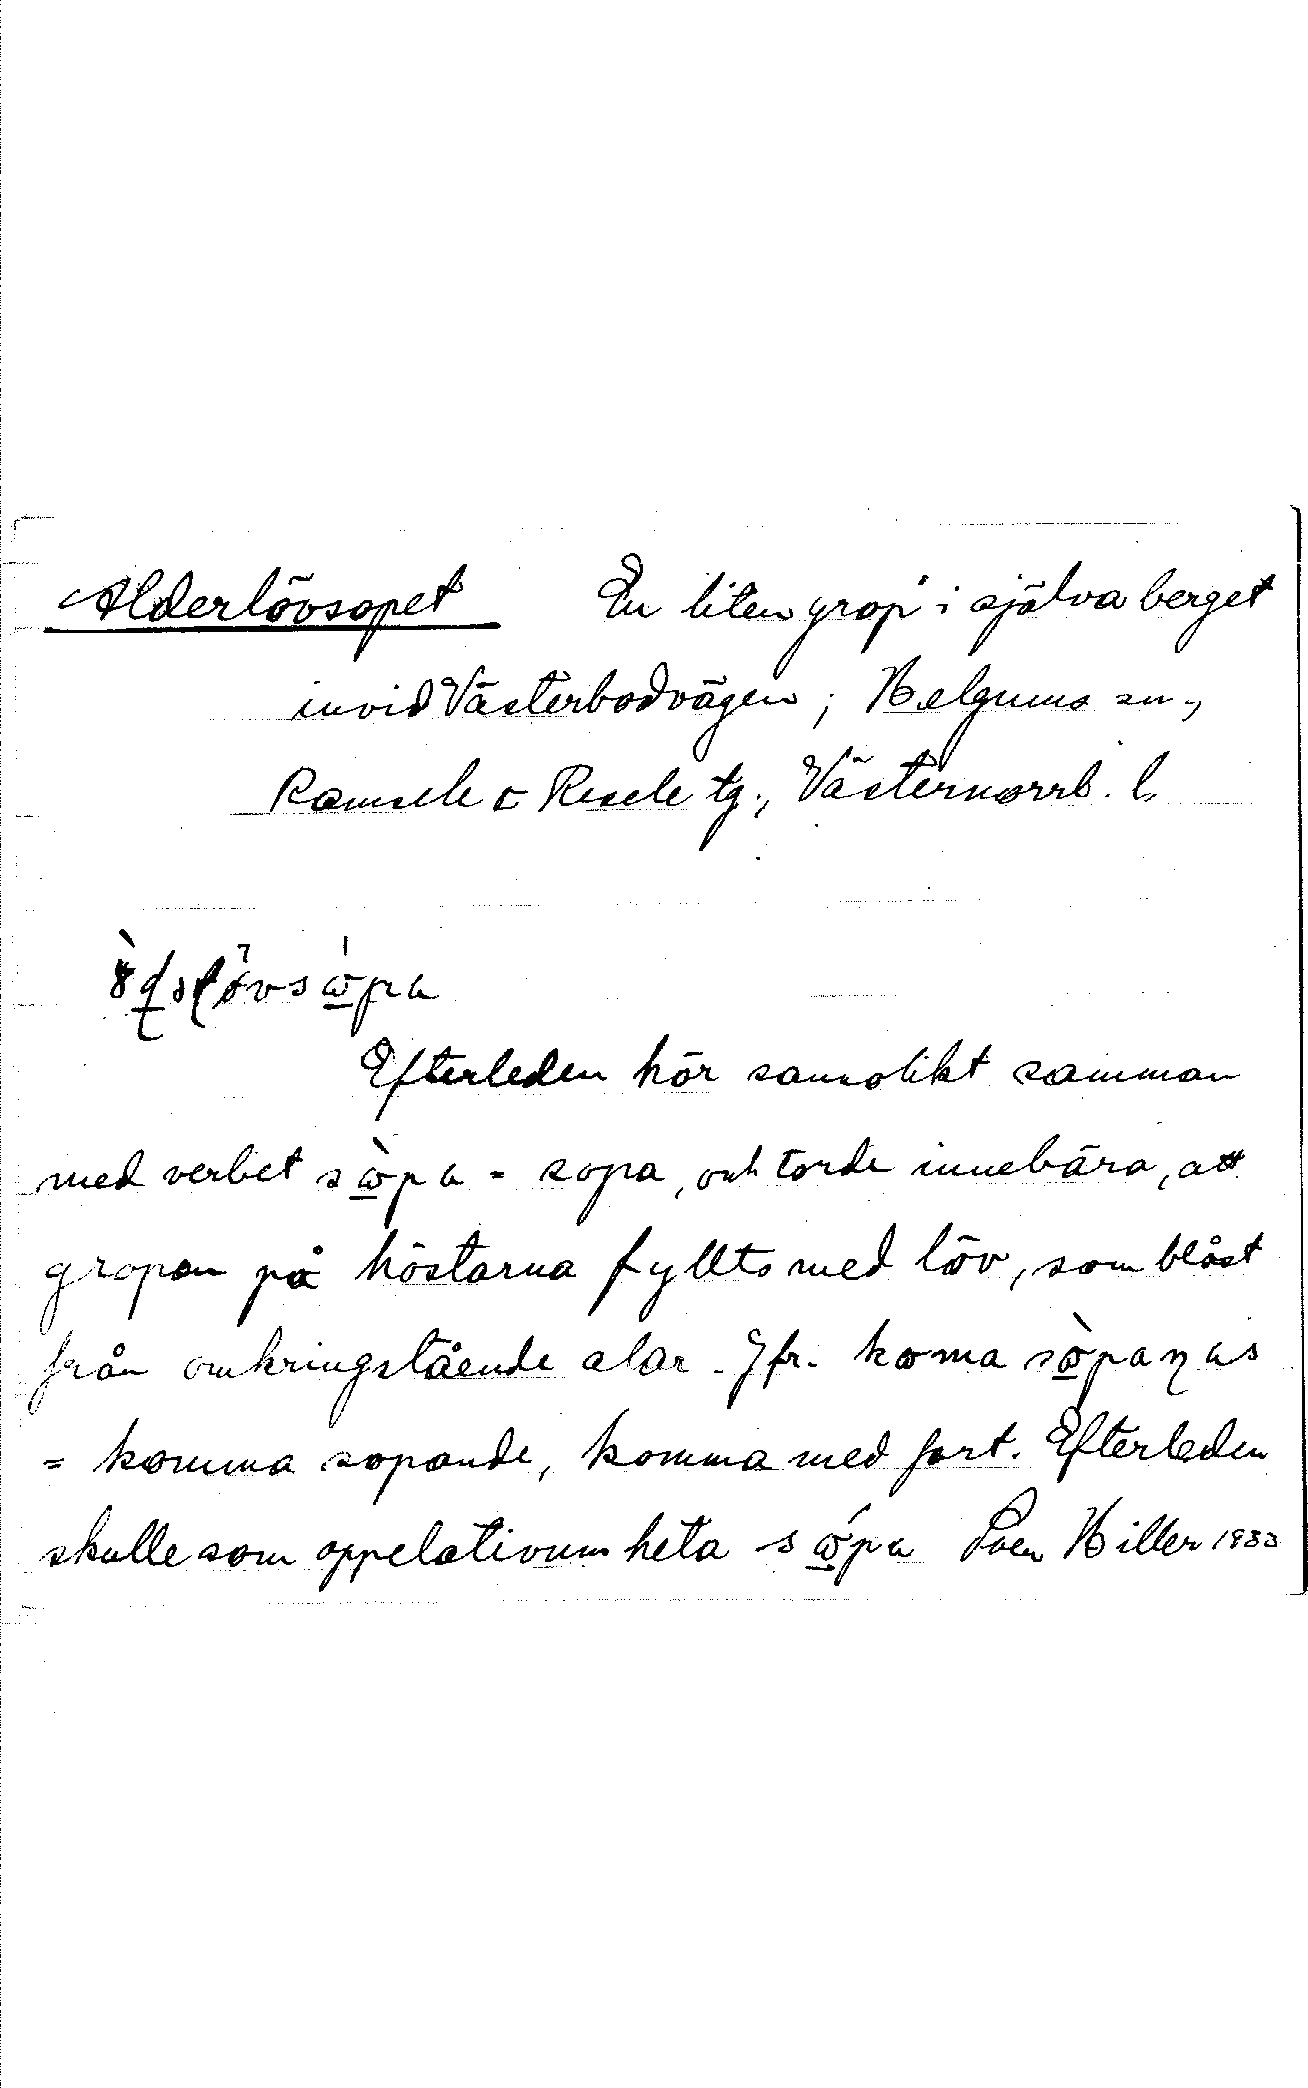 Alderlövsopet En liten grop i själva berget
invid Västerbodvägen; Helgums sn.,
Ramsele o Resele tg., Västernorrl. l.
Efterleden hör sannolikt samman
med verbet sɷ̀pa = sopa, och torde innebära, att
gropen på höstarna fyllts med löv, som blåst
från omkringstående alar. Jfr. koma sɷ̀paŋas
= komma sopande, komma med fart. Efterleden
skulle som appelativum heta sɷ́pa Sven Hiller 1933